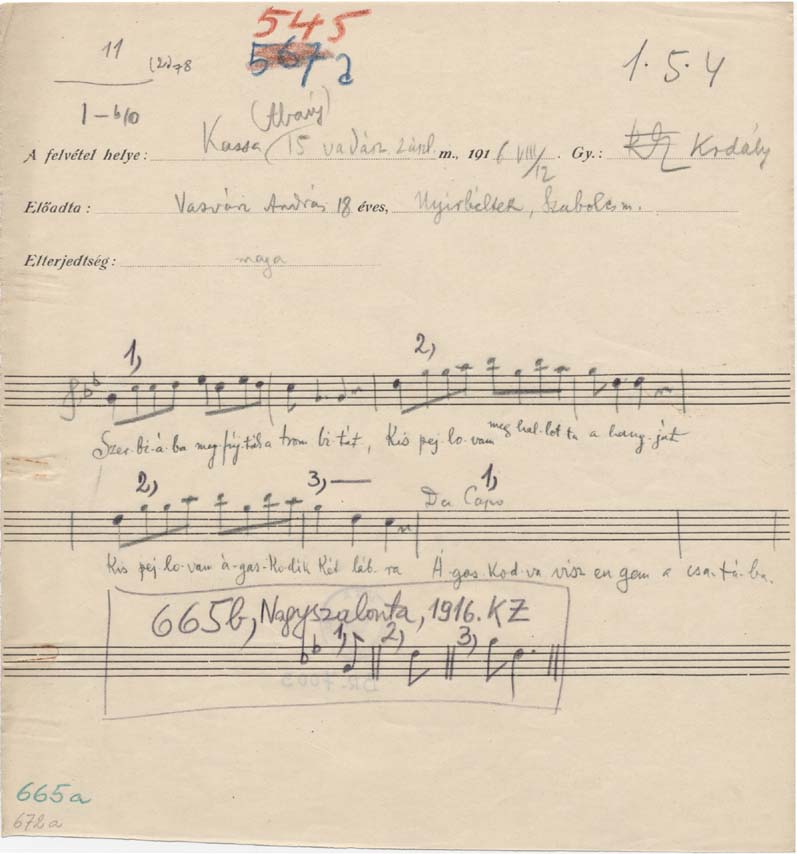 545
11
567a
1.5.4
1-b10
(Abauj)
A felvétel helye: Kassa 15 vadász m., 1916 VIII/12. Gy.: Kodály
Előadta: Vasvári András 18 éves, Nyirbéltek, Szabolcs m.
Elterjedtség: maga
1, 2,
Szer-bi-á-ba meg fuj-ták a trom-bi-tát, Kis pej lo-vam meg hal-lot-ta a hang-ját
2, 3, Da Capo 1,
Kis pej lo-vam á-gas-kodik két láb-ra Á-gas-kod-va visz en-gem a csa-tá-ba.
665b, Nagyszalonta, 1916. KZ
1, 2, 3,
665a
672a